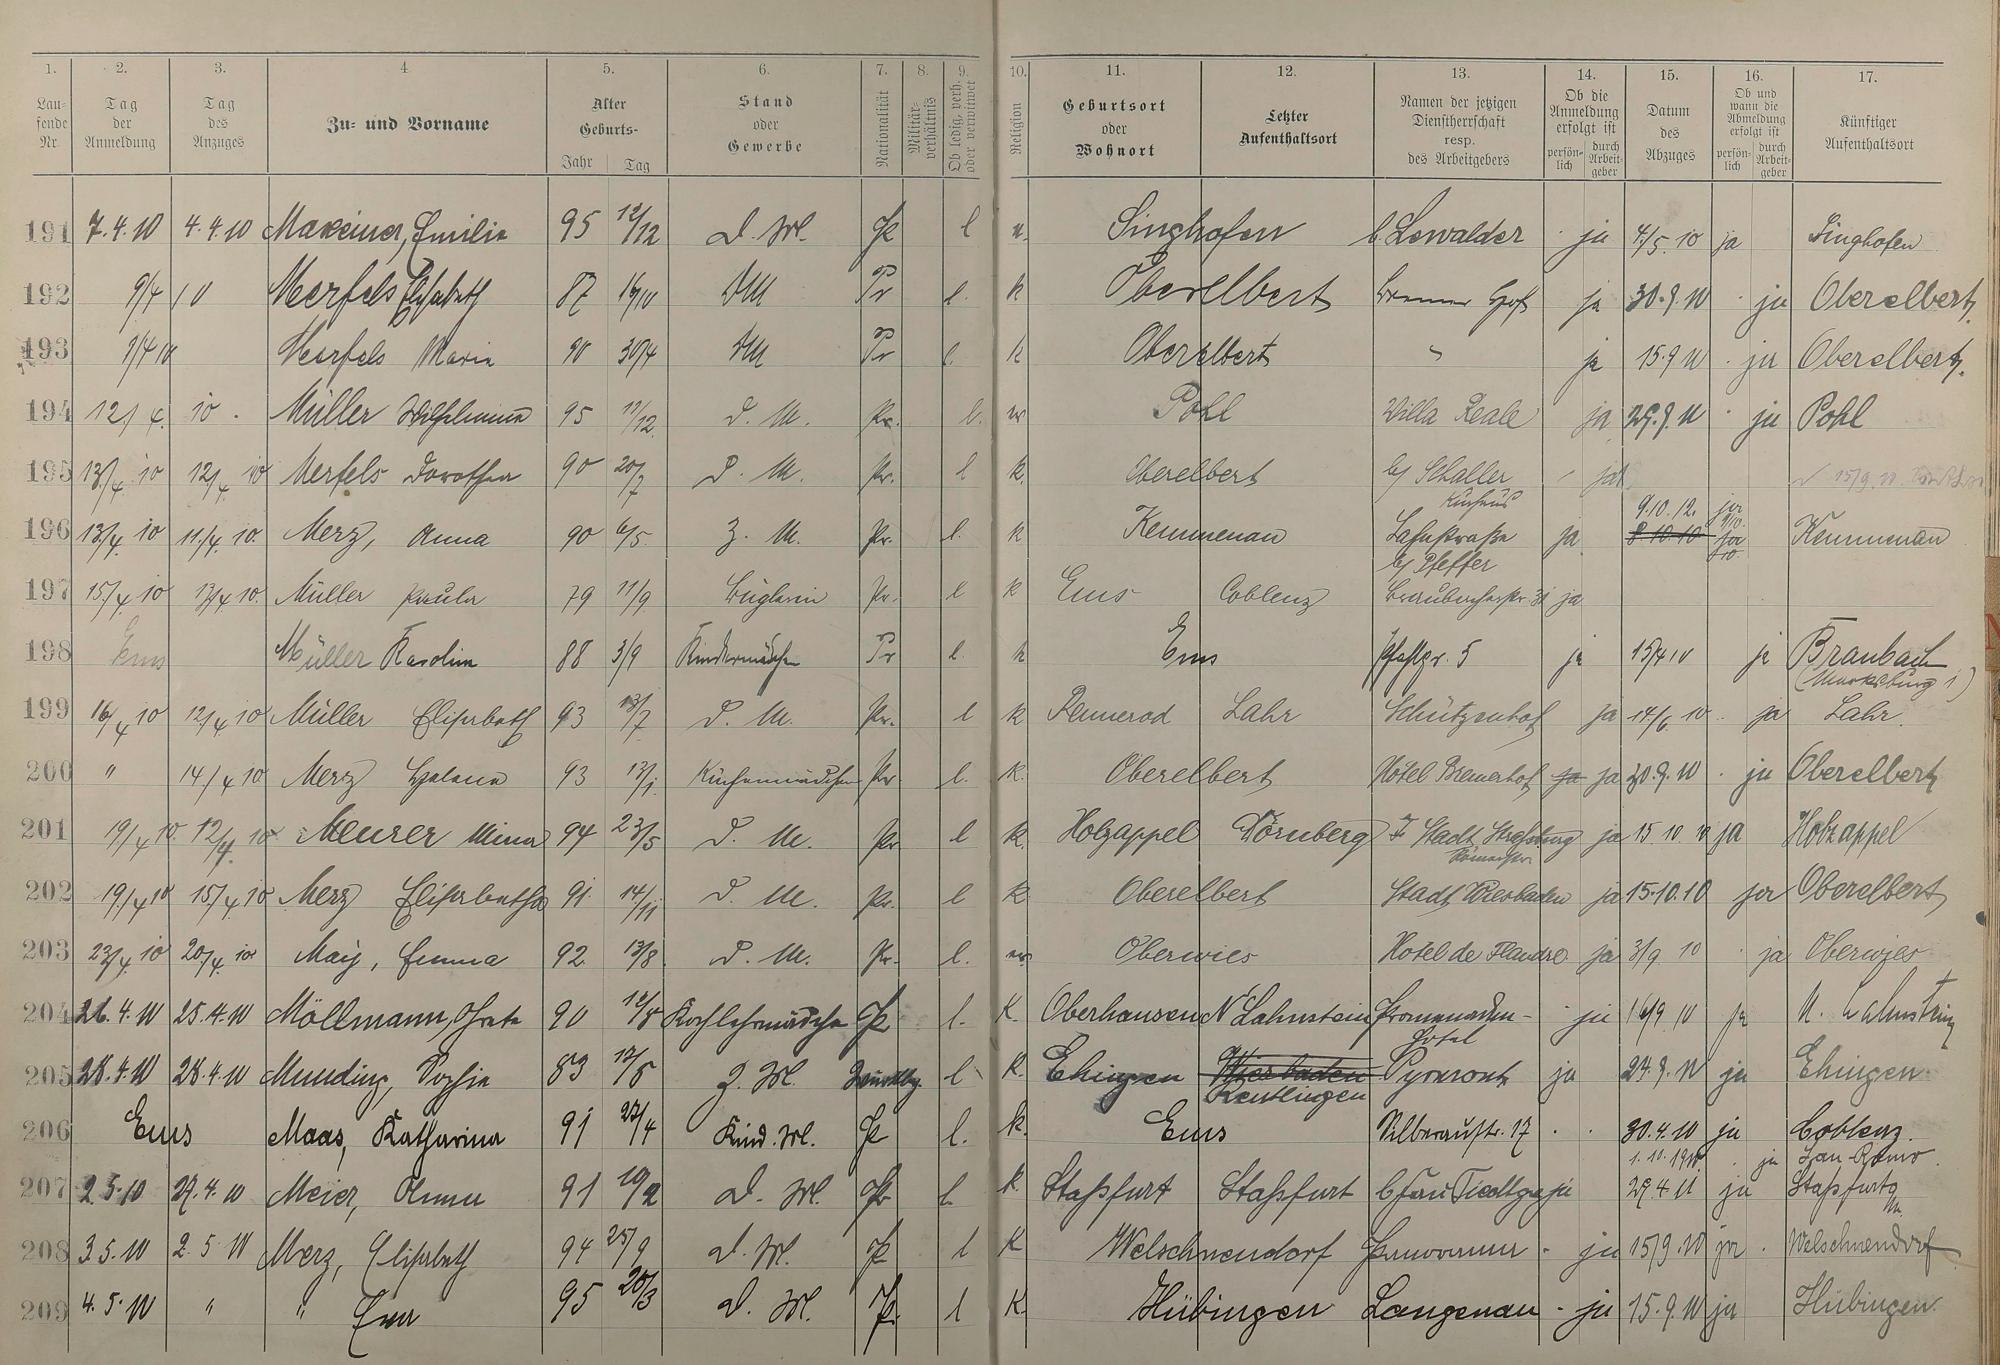 1. 2. 3. 4. 5. 6. 7. 8. 9. 10. 11. 12. 13. 14. 15. 16. 17.
Lau-fende Nr. Tag der Anmeldung Tag des Anzuges Zu- und Vorname Alter Geburts- Jahr Tag Stand oder Gewerbe Nationalität Militär-verhältnis Ob ledig, verh. oder verwitwet Religion Geburtsort oder Wohnort Letzter Aufenthaltsort Namen der jetzigen Dienstherrschaft resp. des Arbeitgebers Ob die Anmeldung erfolgt ist persön-lich durch Arbeit-geber Datum des Abzuges Ob und wann die Abmeldung erfolgt ist persön-lich durch Arbeit-geber Künftiger Aufenthaltsort
191 7.4.10 4.4.10 Emilie 95 12/12 D. M. Pr l Singhofen b. Lewalder ja 4/5.10 ja Singhofen
192 9/4 10 Merfels Elisabeth 87 DM Pr l. k Oberelbert Bremer Hof ja 30.9.10 ja Oberelbert
193 9/4 10 Merfels Maria 90 30/4 DM Pr l. k Oberelbert " ja 15.9.10 ja Oberelbert
194 12/4. 10. Müller Wilhelmina 95 11/12 D. M. Pr. l. Pohl Villa Reale ja 29.9.10 ja Pohl
195 13/4 10 12/4 10 Merfels Dorothea 90 20/7 D. M. Pr. l k. Oberelbert bei Schaller ja 15/9.10
196 13/4 10 11/4. 10. Merz, Anna 90 6/5. Z. M. Pr. l. k Kemmenau Kurhaus Lahnstraße ja 9.10.12. 8.10.10 ja Kemmenau
197 15/4 10 13/4 10. Müller Paula 79 11/9 Büglerin Pr. l k Ems Coblenz bei Pfeffer Braubacherstr. 31 ja
198 Ems Müller Karolina 88 3/9 Kindermädchen Pr l. k Ems Pfahlgr. 5 ja 15/4 10 ja Braubach (Marksburg 1)
199 16/4 10 12/4 10 Müller Elisabeth 93 13/7 D. M. Pr. l k Rennerod Lahr Schützenhof ja 14/6. 10 ja Lahr
200 " 14/4 10 Merz Helena 93 13/1. Küchenmädchen Pr l. k. Oberelbert Hotel Bremerhof ja ja 30.9.10 ja Oberelbert
201 19/4 10. 12/4. 10 Meurer Mina 94 23/5 D. M. Pr l k. Holzappel Dörnberg Stadt Straßburg Römerstr ja 15.10.10 ja Holzappel
202 19/4 10 15/4 10 Merz Elisabetha 91 14/11 D. M. Pr. l k Oberelbert Stadt Wiesbaden ja 15.10.10 ja Oberelbert
203 23/4 10 20/4 10 May, Emma 92. 13/8 D. M. Pr. l. Oberwies Hotel de Flandre ja 3/9 10 ja Oberwies
204 26.4.10 25.4.10 Möllmann, Grete 90 12/8 Kochlehrmädchen Pr l. K. Oberhausen N'Lahnstein Promenaden-Hotel ja 16/9 10 ja N. Lahnstein
205 28.4.10 28.4.10 Munding, Sophie 83 Z. M. l k. Ehingen Wiesbaden Reutlingen Pyrmont ja 24.9.10 ja Ehingen
206 Ems Maas, Katharina 91 27/4 Kind. M. Pr l. k. Ems Silberaustr. 17 30.4.10 ja Coblenz.
207 2.5.10 29.4.10 Meier, Anna 91 10/2 D. M. Pr. l. k. Staßfurt Staßfurt b Frau ja 1.11.1910 ja San-Remo 29.4.11 ja Staßfurt
208 3.5.10 2.5.10 Merz, Elisabeth 94 25/9 D. M. Pr l K Welschneudorf ja 15/9.10 ja Welschneudorf
209 4.5.10 " " Eva 95 20/3 D. M. Pr. l K. Hübingen Langenau ja 15.9.10 ja Hübingen